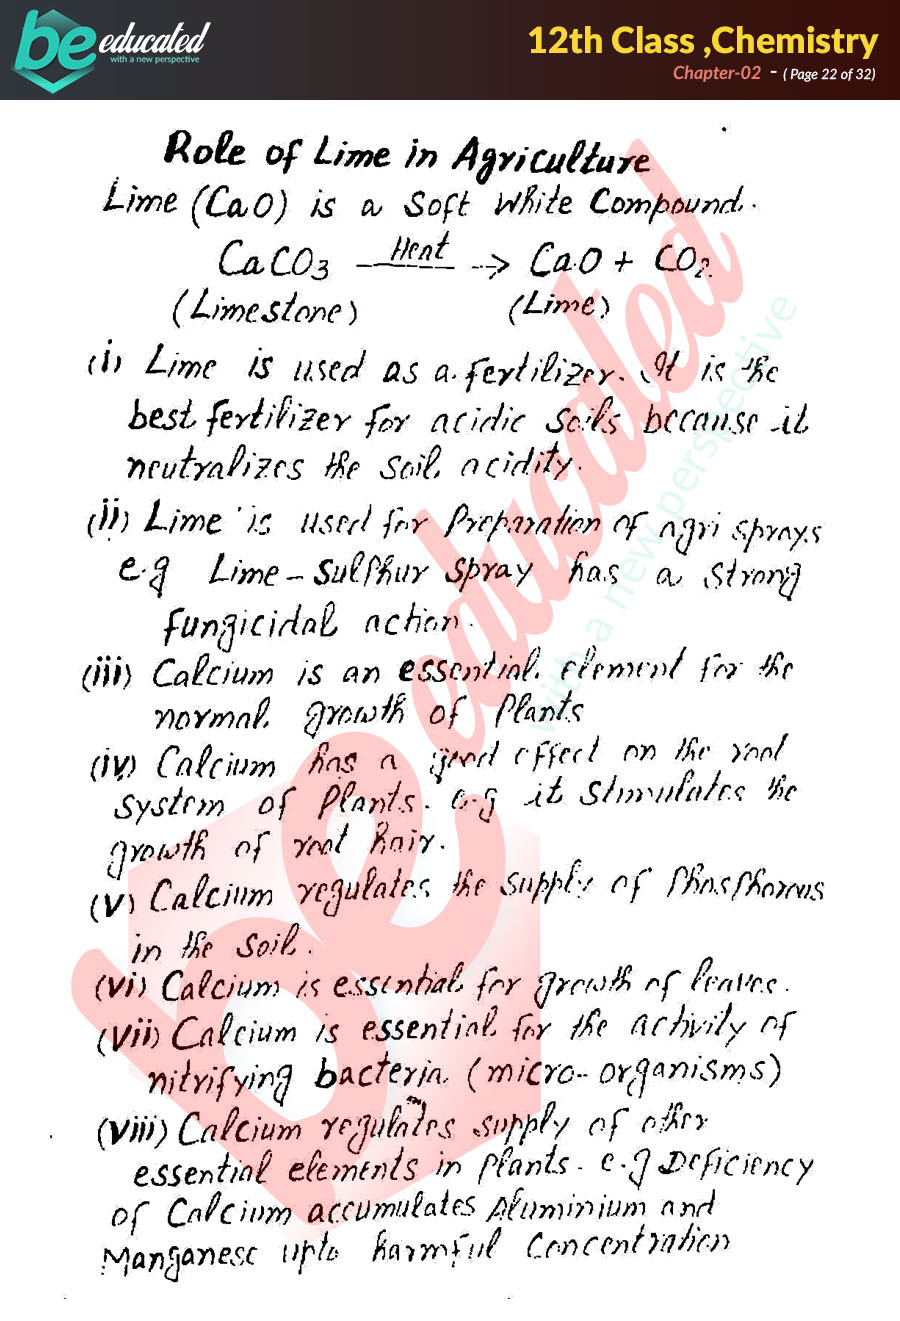 be educated
with a new perspective
12th Class ,Chemistry
Chapter-02 - ( Page 22 of 32)
Role of Lime in Agriculture
Lime (CaO) is a soft white Compound.
CaCO3 Heat → CaO + CO2
(Limestone) (Lime)
(i) Lime is used as a fertilizer. It is the
best fertilizer for acidic soils because it
neutralizes the soil acidity.
(ii) Lime is used for Preparation of agri sprays
e.g Lime-Sulphur spray has a strong
fungicidal action.
(iii) Calcium is an essential element for the
normal growth of Plants
(iv) Calcium has a good effect on the root
system of Plants. e.g it stimulates the
growth of root hair.
(v) Calcium regulates the supply of Phosphorous
in the soil.
(vi) Calcium is essential for growth of leaves.
(vii) Calcium is essential for the activity of
nitrifying bacteria (micro-organisms)
(viii) Calcium regulates supply of other
essential elements in Plants. e.g Deficiency
of Calcium accumulates Aluminium and
Manganese upto harmful Concentration
be educated
with a new perspective